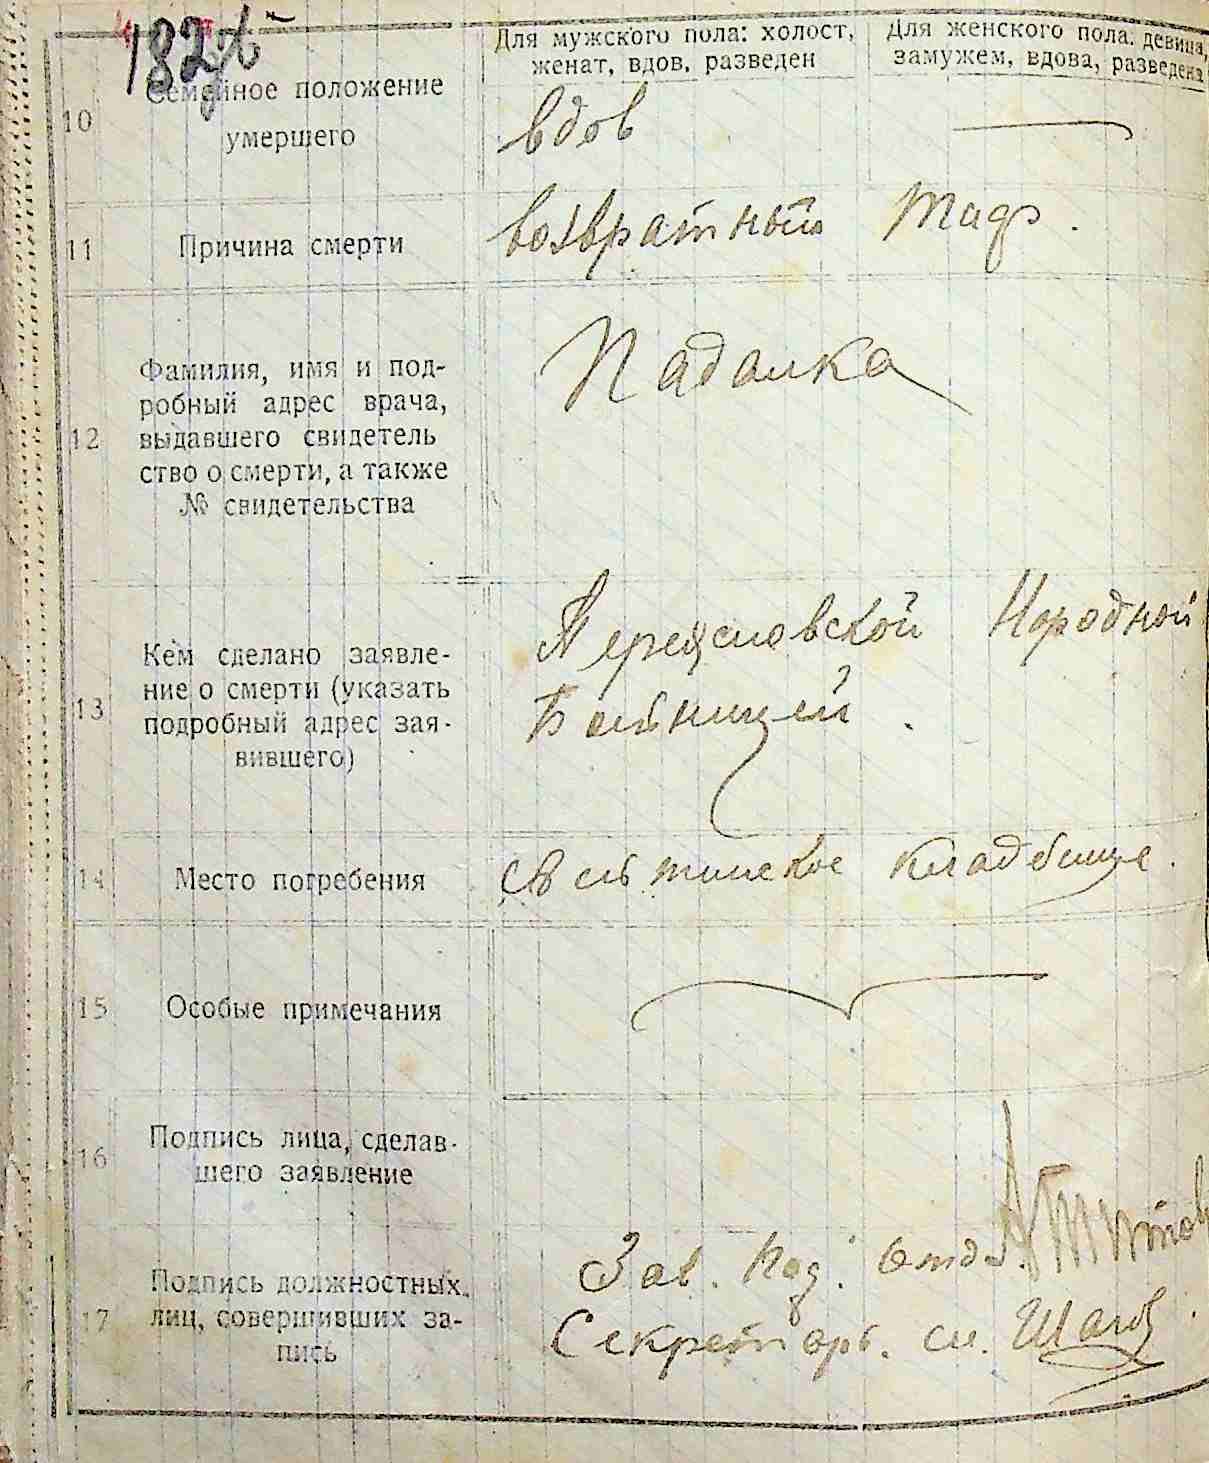 182
Для мужского пола: холост,
женат, вдов, разведен
Для женского пола. девица,
замужем, вдова, разведена
10
Семейное положение
умершего
вдов
11
Причина смерти
возвратный тиф.
12
Фамилия, имя и под-
робный адрес врача,
выдавшего свидетель
ство о смерти, а также
№ свидетельства
Падалка
13
Кем сделано заявле-
ние о смерти (указать
подробный адрес зая-
вившего)
Народной
Больницей.
14
Место погребения
кладбище.
15
Особые примечания
16
Подпись лица, сделав-
шего заявление
17
Подпись должностных
лиц, совершивших за-
пись
Зав. Под. Отд.
Секретарь.